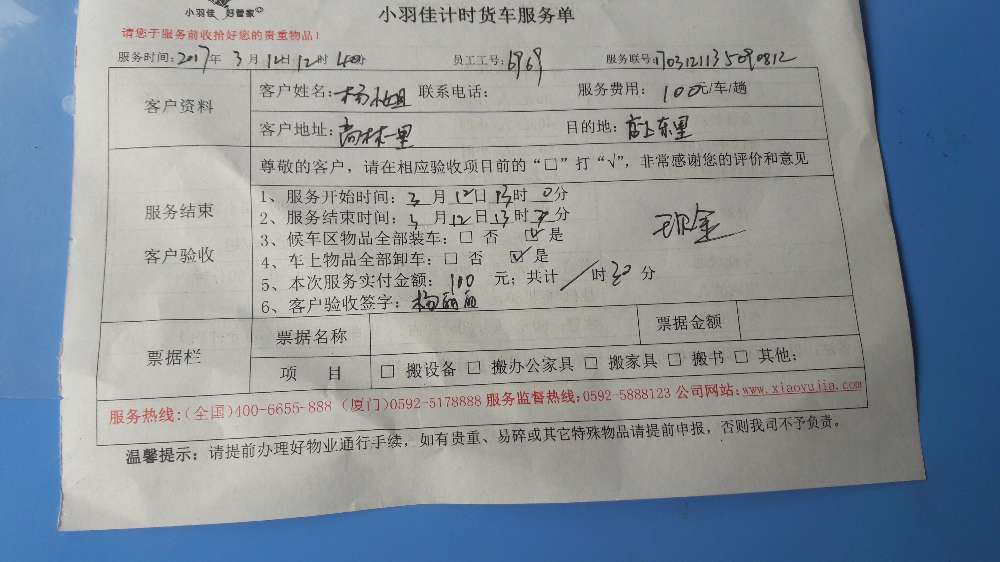 小羽佳 好管家
小羽佳计时货车服务单
请您于服务前收拾好您的贵重物品!
服务时间:2017年3月12日12时40分 员工工号:6969 服务联号:1703121135090812
客户资料 客户姓名:杨小姐 联系电话: 服务费用:100元/车/趟
客户地址:高林一里 目的地:店上东里
尊敬的客户,请在相应验收项目前的“□”打“√”,非常感谢您的评价和意见
服务结束
客户验收
1、服务开始时间:3月12日13时0分
2、服务结束时间:3月12日13时30分
3、候车区物品全部装车:□ 否 ☑ 是
4、车上物品全部卸车:□ 否 ☑ 是
5、本次服务实付金额:100元;共计/时30分
6、客户验收签字:杨丽丽
现金
票据栏 票据名称 票据金额
项 目 □ 搬设备 □ 搬办公家具 □ 搬家具 □ 搬书 □ 其他:
服务热线:(全国)400-6655-888 (厦门)0592-5178888 服务监督热线:0592-5888123 公司网站:www.xiaoyujia.com
温馨提示:请提前办理好物业通行手续,如有贵重、易碎或其它特殊物品请提前申报,否则我司不予负责。